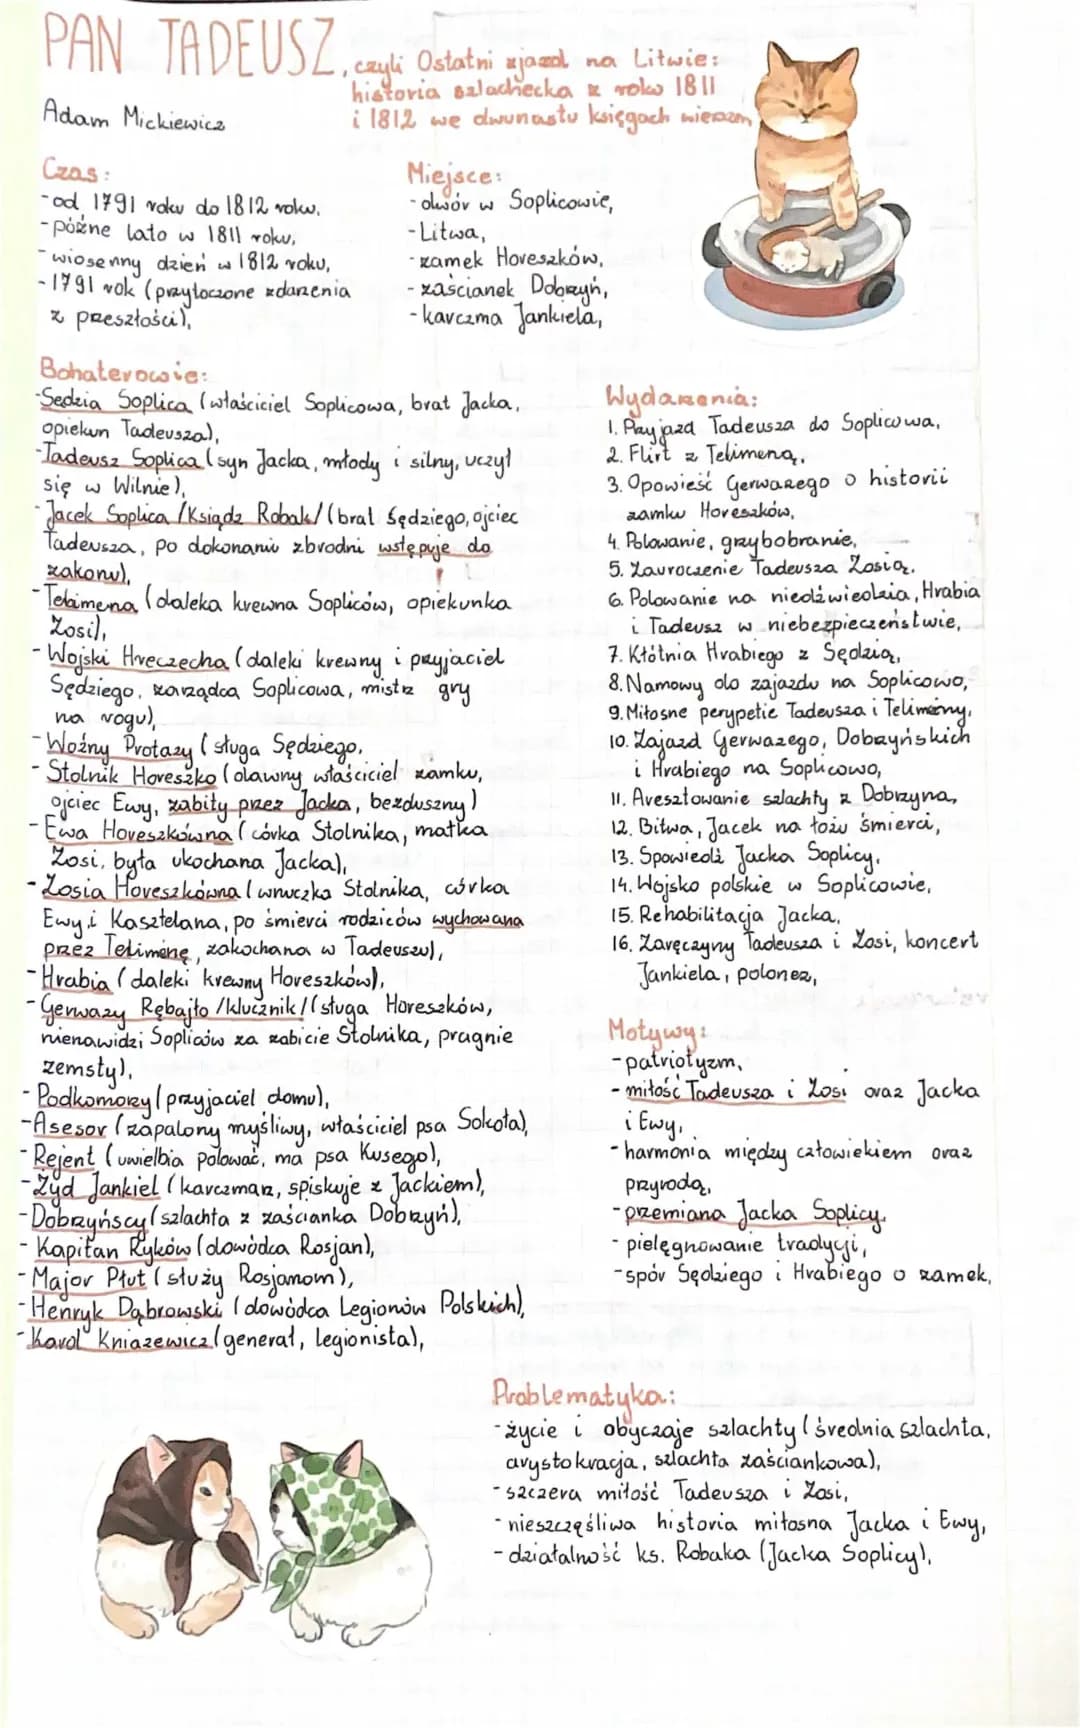 PAN TADEUSZ, czyli Ostatni zjazd na Litwie:
historia szlachecka z roku 1811
i 1812 we dwunastu księgach wierszem
Adam Mickiewicz
Czas:
- od 1791 roku do 1812 roku,
- późne lato w 1811 roku,
- wiosenny dzień w 1812 roku,
- 1791 rok (przytoczone zdarzenia
z przeszłości),
Miejsce:
- dwór w Soplicowie,
- Litwa,
- zamek Horeszków,
- zaścianek Dobrzyń,
- karczma Jankiela,
Bohaterowie:
- Sędzia Soplica (właściciel Soplicowa, brat Jacka,
opiekun Tadeusza),
- Tadeusz Soplica (syn Jacka, młody i silny, uczył
się w Wilnie),
- Jacek Soplica /Ksiądz Robak/ (brat Sędziego, ojciec
Tadeusza, po dokonaniu zbrodni wstępuje do
zakonu),
- Telimena (daleka krewna Sopliców, opiekunka
Zosi),
- Wojski Hreczecha (daleki krewny i przyjaciel
Sędziego, zarządca Soplicowa, mistrz gry
na rogu),
- Woźny Protazy (sługa Sędziego,
- Stolnik Horeszko (dawny właściciel zamku,
ojciec Ewy, zabity przez Jacka, bezduszny)
- Ewa Horeszkówna (córka Stolnika, matka
Zosi, była ukochana Jacka),
- Zosia Horeszkówna (wnuczka Stolnika, córka
Ewy i Kasztelana, po śmierci rodziców wychowana
przez Telimenę, zakochana w Tadeuszu),
- Hrabia (daleki krewny Horeszków),
- Gerwazy Rębajło /klucznik/ (sługa Horeszków,
nienawidzi Sopliców za zabicie Stolnika, pragnie
zemsty),
- Podkomorzy (przyjaciel domu),
- Asesor (zapalony myśliwy, właściciel psa Sokoła),
- Rejent (uwielbia polować, ma psa Kusego),
- Żyd Jankiel (karczmarz, spiskuje z Jackiem),
- Dobrzyńscy (szlachta z zaścianka Dobrzyń),
- Kapitan Ryków (dowódca Rosjan),
- Major Płut (służy Rosjanom),
- Henryk Dąbrowski (dowódca Legionów Polskich),
- Karol Kniaźewicz (generał, legionista),
Wydarzenia:
1. Przyjazd Tadeusza do Soplicowa,
2. Flirt z Telimeną,
3. Opowieść Gerwazego o historii
zamku Horeszków,
4. Polowanie, grzybobranie,
5. Zauroczenie Tadeusza Zosią,
6. Polowanie na niedźwiedzia, Hrabia
i Tadeusz w niebezpieczeństwie,
7. Kłótnia Hrabiego z Sędzią,
8. Namowy do zajazdu na Soplicowo,
9. Miłosne perypetie Tadeusza i Telimeny,
10. Zajazd Gerwazego, Dobrzyńskich
i Hrabiego na Soplicowo,
11. Aresztowanie szlachty z Dobrzyna,
12. Bitwa, Jacek na łożu śmierci,
13. Spowiedź Jacka Soplicy,
14. Wojsko polskie w Soplicowie,
15. Rehabilitacja Jacka,
16. Zaręczyny Tadeusza i Zosi, koncert
Jankiela, polonez,
Motywy:
- patriotyzm,
- miłość Tadeusza i Zosi oraz Jacka
i Ewy,
- harmonia między człowiekiem oraz
przyrodą,
- przemiana Jacka Soplicy,
- pielęgnowanie tradycji,
- spór Sędziego i Hrabiego o zamek,
Problematyka:
- życie i obyczaje szlachty (średnia szlachta,
arystokracja, szlachta zaściankowa),
- szczera miłość Tadeusza i Zosi,
- nieszczęśliwa historia miłosna Jacka i Ewy,
- działalność ks. Robaka (Jacka Soplicy),